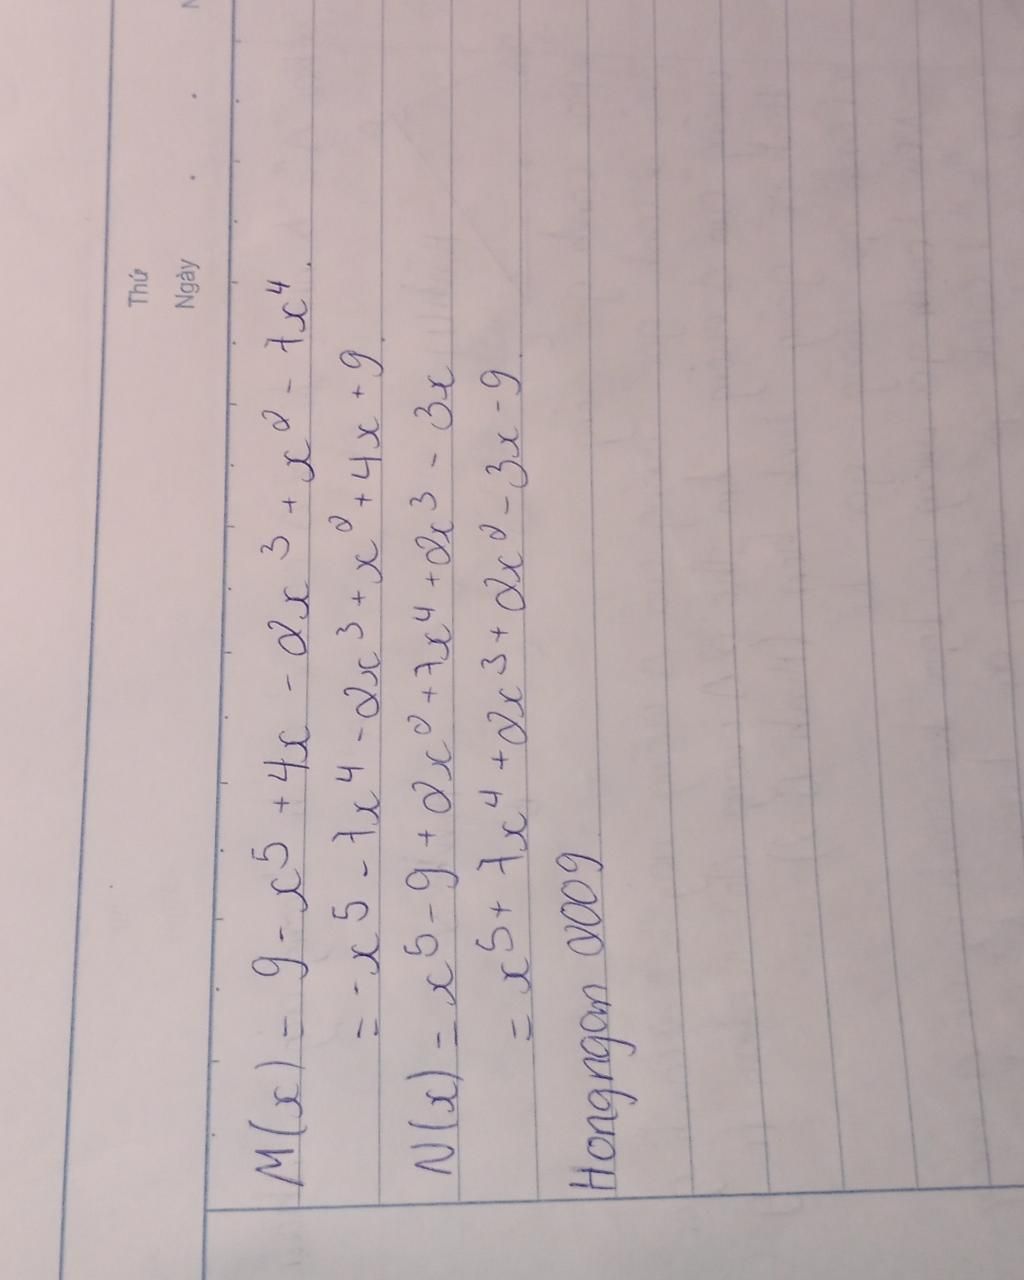 Thứ
Ngày
M(x) = 9 - x⁵ + 4x - 2x³ + x² - 7x⁴
= -x⁵ - 7x⁴ - 2x³ + x² + 4x + 9
N(x) = x⁵ - 9 + 2x² + 7x⁴ + 2x³ - 3x
= x⁵ + 7x⁴ + 2x³ + 2x² - 3x - 9
Hongngan 2009